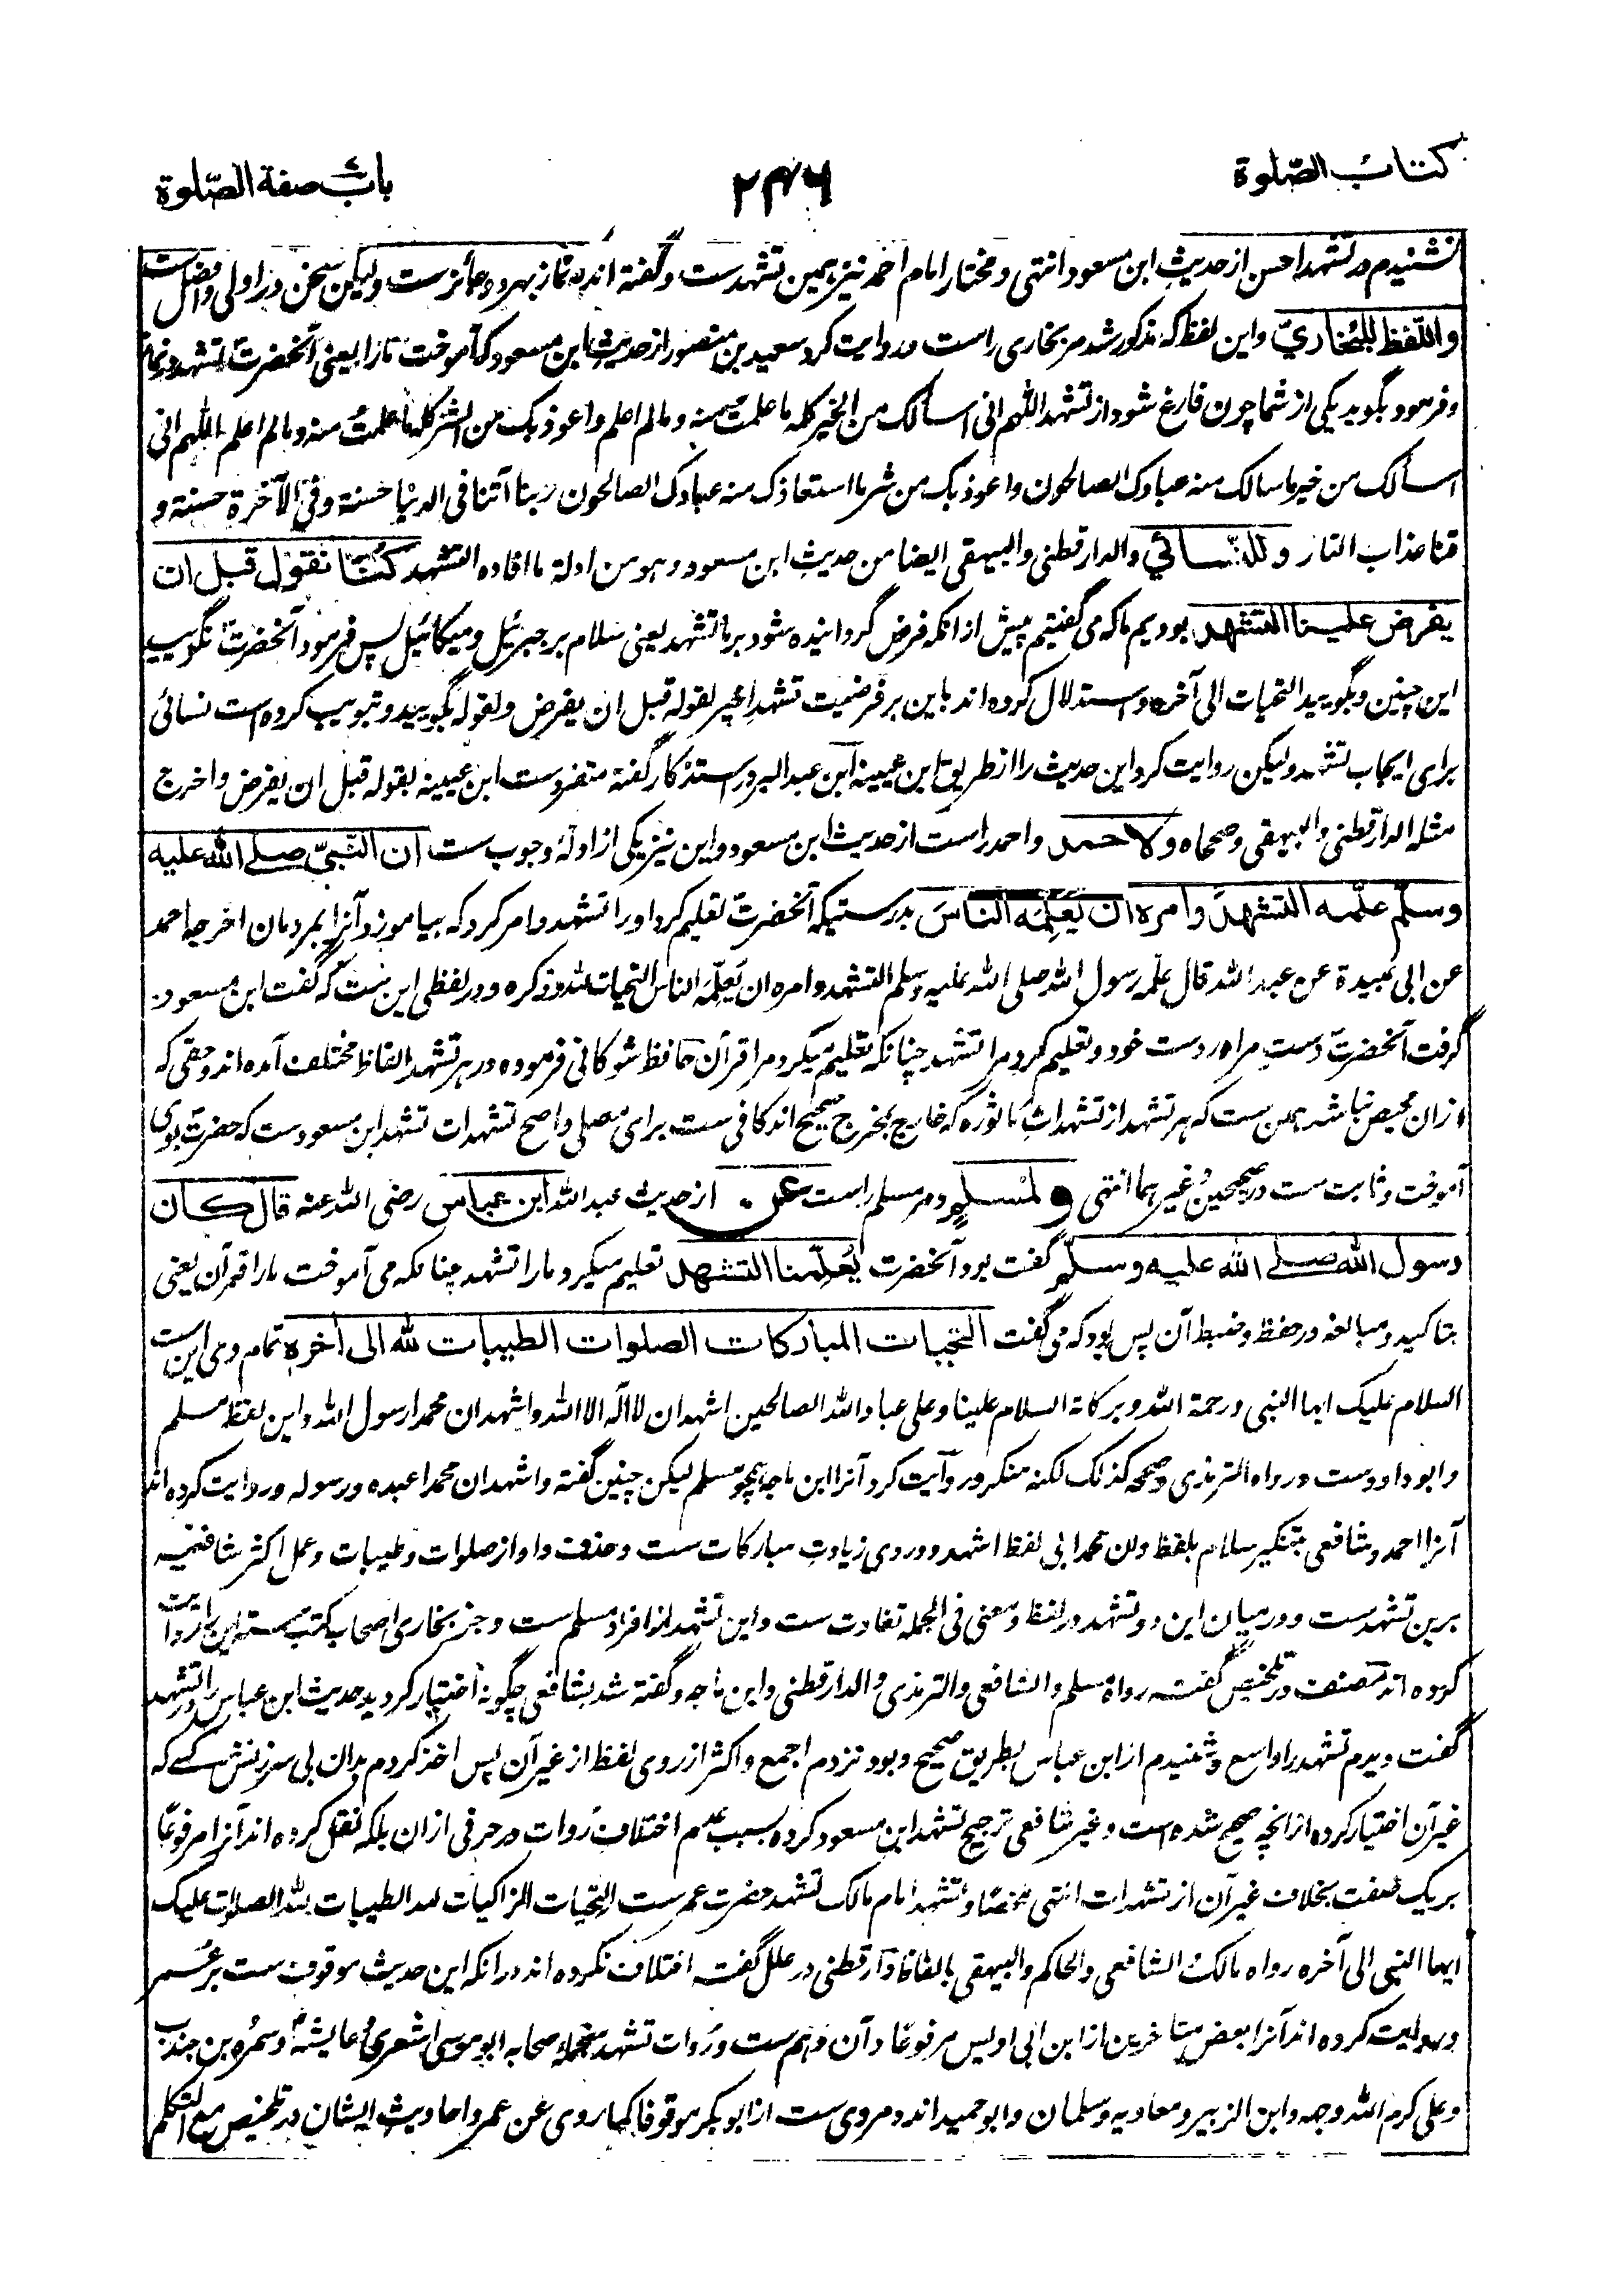 كتاب الصّلوة
۲۳۶
باب صفة الصّلوة
نشنیدم در تشهد احسن از حدیث ابن مسعود انتهی و مختار امام احمد نیز همین تشهدست و گفته اند نماز بهر دو جائزست ولیکن سخن در اولی وافضل ست
واللّفظ للبُخاريّ واین لفظ که مذکور شد مر بخاری راست و روایت کرد سعید بن منصور از حدیث ابن مسعود که آموخت مارا یعنی آنحضرت تشهد در نماز
وفرمود بگوید یکی از شما چون فارغ شود از تشهد اللهم انی اسألک من الخیر کله ما علمت منه وما لم اعلم واعوذ بک من الشر کله ما علمت منه وما لم اعلم اللهم انی
اسألک من خیر ما سالک منه عبادک الصالحون واعوذ بک من شر ما استعاذک منه عبادک الصالحون ربنا آتنا فی الدنیا حسنة وفی الآخرة حسنة و
قنا عذاب النار وللنّسائي والدارقطنی والبیهقی ایضا من حدیث ابن مسعود وهو من ادلة ما افاده التشهد كُنّا نقول قبل ان
يفرض علينا التشهد بودیم ما که می گفتیم پیش از انکه فرض گردانیده شود بر ما تشهد یعنی سلام بر جبرئیل ومیکائیل پس فرمود آنحضرت نگویید
این چنین وبگویید التحیات الی آخره واستدلال کرده اند باین بر فرضیت تشهد اخیر لقوله قبل ان یفرض ولقوله بگویید وتبویب کرده است نسائی
برای ایجاب تشهد ولیکن روایت کرد این حدیث را از طریق ابن عیینه ابن عبدالبر در استذکار گفته متفردست ابن عیینه بقوله قبل ان یفرض واخرج
مثله الدارقطنی والبیهقی وصححاه ولاحمد واحمد راست از حدیث ابن مسعود واین نیز یکی از ادلهٔ وجوب ست ان النّبيّ صلے الله عليه
وسلّم علّمه التشهد وامره ان يُعَلّمَه الناسَ بدرستیکه آنحضرت تعلیم کرد اورا تشهد وامر کرد که بیاموزد آنرا بمردمان اخرجه احمد
عن ابی عبیدة عن عبد الله قال علّمه رسول الله صلی الله علیه وسلم التشهد وامره ان یُعلّمه الناس التحیات لله وذکره ودر لفظی این ست که گفت ابن مسعود
گرفت آنحضرت دست مرا در دست خود و تعلیم کرد مرا تشهد چنانکه تعلیم میکرد مرا قرآن حافظ شوکانی فرموده در هر تشهد الفاظ مختلف آمده اند وحقی که
ازان محیص نباشد همین ست که هر تشهد از تشهدات ماثوره که خارج بمخرج صحیح اند کافی ست برای مصلی واصح تشهدات تشهد ابن مسعودست که حضرت بوی
آموخت وثابت ست در صحیحین وغیرهما انتهی ولمُسلمٍ ومر مسلم راست عن از حدیث عبد الله ابن عباس رضی الله عنه قال كان
رسول الله صلے الله عليه وسلّم گفت بود آنحضرت يُعلّمنا التشهد تعلیم میکرد مارا تشهد چنانکه می آموخت مارا قرآن یعنی
بتاکید ومبالغه در حفظ وضبط آن پس بود که می گفت التحيات المباركات الصلوات الطيبات لله الى اخره تمام وی این ست
السلام علیک ایها النبی ورحمة الله وبرکاته السلام علینا وعلی عباد الله الصالحین اشهد ان لا اله الا الله واشهد ان محمدا رسول الله واین لفظ مسلم
وابو داودست ورواه الترمذی وصححه کذلک لکنه منکر وروایت کرد آنرا ابن ماجه همچو مسلم لیکن چنین گفته واشهد ان محمدا عبده ورسوله وروایت کرده اند
آنرا احمد وشافعی بتنکیر سلام بلفظ وان محمدا بی لفظ اشهد ودر وی زیادت مبارکات ست وحذف واو از صلوات وطیبات وعمل اکثر شافعیه
برین تشهدست ودر میان این دو تشهد در لفظ ومعنی فی الجمله تفاوت ست واین تشهد از افراد مسلم ست وجز بخاری اصحاب کتب سته این را روایت
کرده اند مصنف در تلخیص گفته رواه مسلم والشافعی والترمذی والدارقطنی وابن ماجه وگفته شد بشافعی چگونه اختیار کردید حدیث ابن عباس را در تشهد
گفت دیدم تشهد را واسع وشنیدم از ابن عباس بطریق صحیح وبود نزدم اجمع واکثر از روی لفظ از غیر آن پس اخذ کردم بدان بی سرزنش کسے که
غیر آن اختیار کرده از انچه صحیح شده است وغیر شافعی ترجیح تشهد ابن مسعود کرده بسبب عدم اختلاف روات در حرفی ازان بلکه نقل کرده اند آنرا مرفوعًا
بریک صفت بخلاف غیر آن از تشهدات انتهی ملخصًا وتشهد امام مالک تشهد حضرت عمرست التحیات لله الزاکیات لله الطیبات لله الصلوات علیک
ایها النبی الی آخره رواه مالک والشافعی والحاکم والبیهقی بالفاظ ودارقطنی در علل گفته اختلاف نکرده اند در انکه این حدیث موقوف ست بر عُمر
وروایت کرده اند آنرا بعض متاخرین از ابن ابی اویس مرفوعًا وآن وهم ست وروات تشهد منجملهٔ صحابه ابو موسی اشعری وعایشه وسمره بن جندب
وعلی کرم الله وجهه وابن الزبیر ومعاویه وسلمان وابو حمید اند ومروی ست از ابوبکر موقوفا کما روی عن عمر واحادیث ایشان در تلخیص مع التکلم